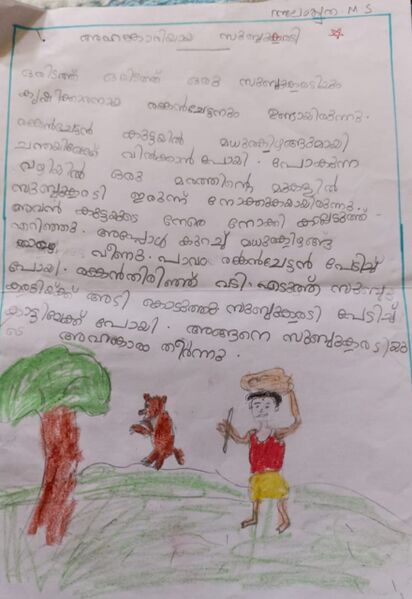 M S
അഹങ്കാരിയായ സുബ്ബുകരടി
ഒരിടത്ത് ഒരിടത്ത് ഒരു സുബ്ബുകരടിയും
കൃഷിക്കാരനായ രങ്കൻചേട്ടനും ഉണ്ടായിരുന്നു.
രങ്കൻചേട്ടൻ കുട്ടയിൽ മധുരകിഴങ്ങുമായി
ചന്തയിലേക്ക് വിൽക്കാൻ പോയി. പോകുന്ന
വഴിയിൽ ഒരു മരത്തിന്റെ മുകളിൽ
സുബ്ബുകരടി ഇരുന്ന് നോക്കുകയായിരുന്നു.
അവൻ കുട്ടയുടെ നേരെ നോക്കി കല്ലെടുത്ത്
എറിഞ്ഞു. അപ്പോൾ കുറച്ച് മധുരക്കിഴങ്ങ്
വീണു. പാവം രങ്കൻചേട്ടൻ പേടിച്ച്
പോയി. രങ്കൻതിരിഞ്ഞ് വടി എടുത്ത് സുബ്ബു
കരടിയ്ക്ക് അടി കൊടുത്തു സുബ്ബുകരടി പേടിച്ച്
കാട്ടിലേക്ക് പോയി. അങ്ങനെ സുബ്ബുകരടിയു
ടെ അഹങ്കാരം തീർന്നു.